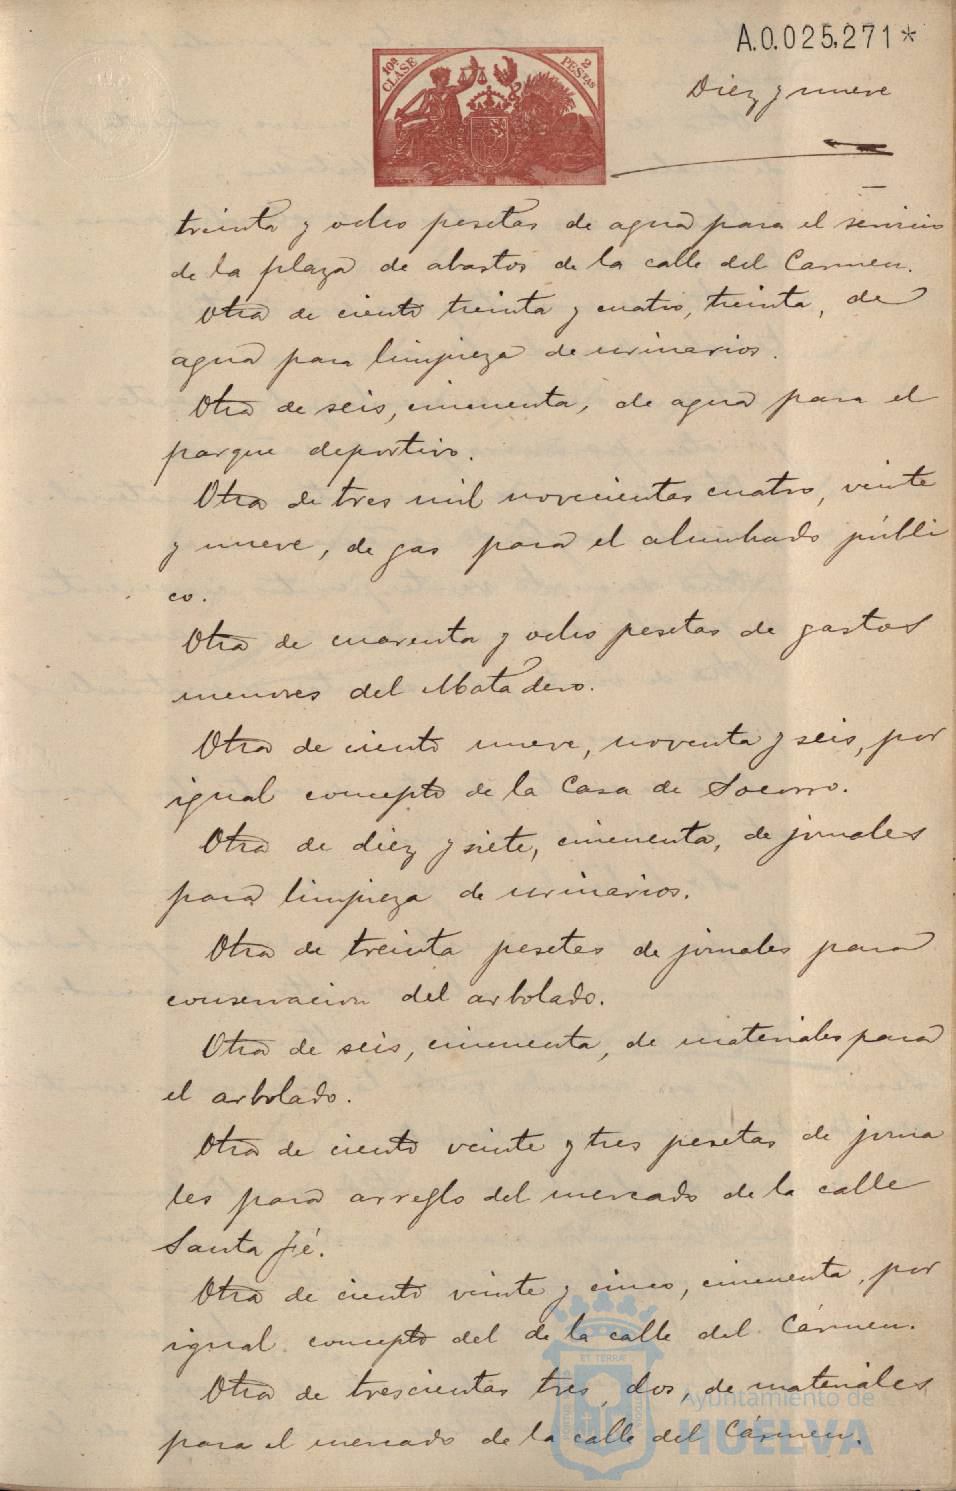 A.0.025,271*
10ª CLASE
2 PESETAS
Diez y nueve
treinta y ocho pesetas de agua para el servicio
de la plaza de abastos de la calle del Carmen.
Otra de ciento treinta y cuatro, treinta, de
agua para limpieza de urinarios.
Otra de seis, cincuenta, de agua para el
parque deportivo.
Otra de tres mil novecientas cuatro, veinte
y nueve, de gas para el alumbrado públi
co.
Otra de cuarenta y ocho pesetas de gastos
menores del Matadero.
Otra de ciento nueve, noventa y seis, por
igual concepto de la Casa de Socorro.
Otra de diez y siete, cincuenta, de jornales
para limpieza de urinarios.
Otra de treinta pesetas de jornales para
conservacion del arbolado.
Otra de seis, cincuenta, de materiales para
el arbolado.
Otra de ciento veinte y tres pesetas de jorna
les para arreglo del mercado de la calle
Santa Fé.
Otra de ciento veinte y cinco, cincuenta, por
igual concepto del de la calle del Cármen.
Otra de trescientas tres, dos, de materiales
para el mercado de la calle del Cármen.
ET TERRÆ
Ayuntamiento de
HUELVA